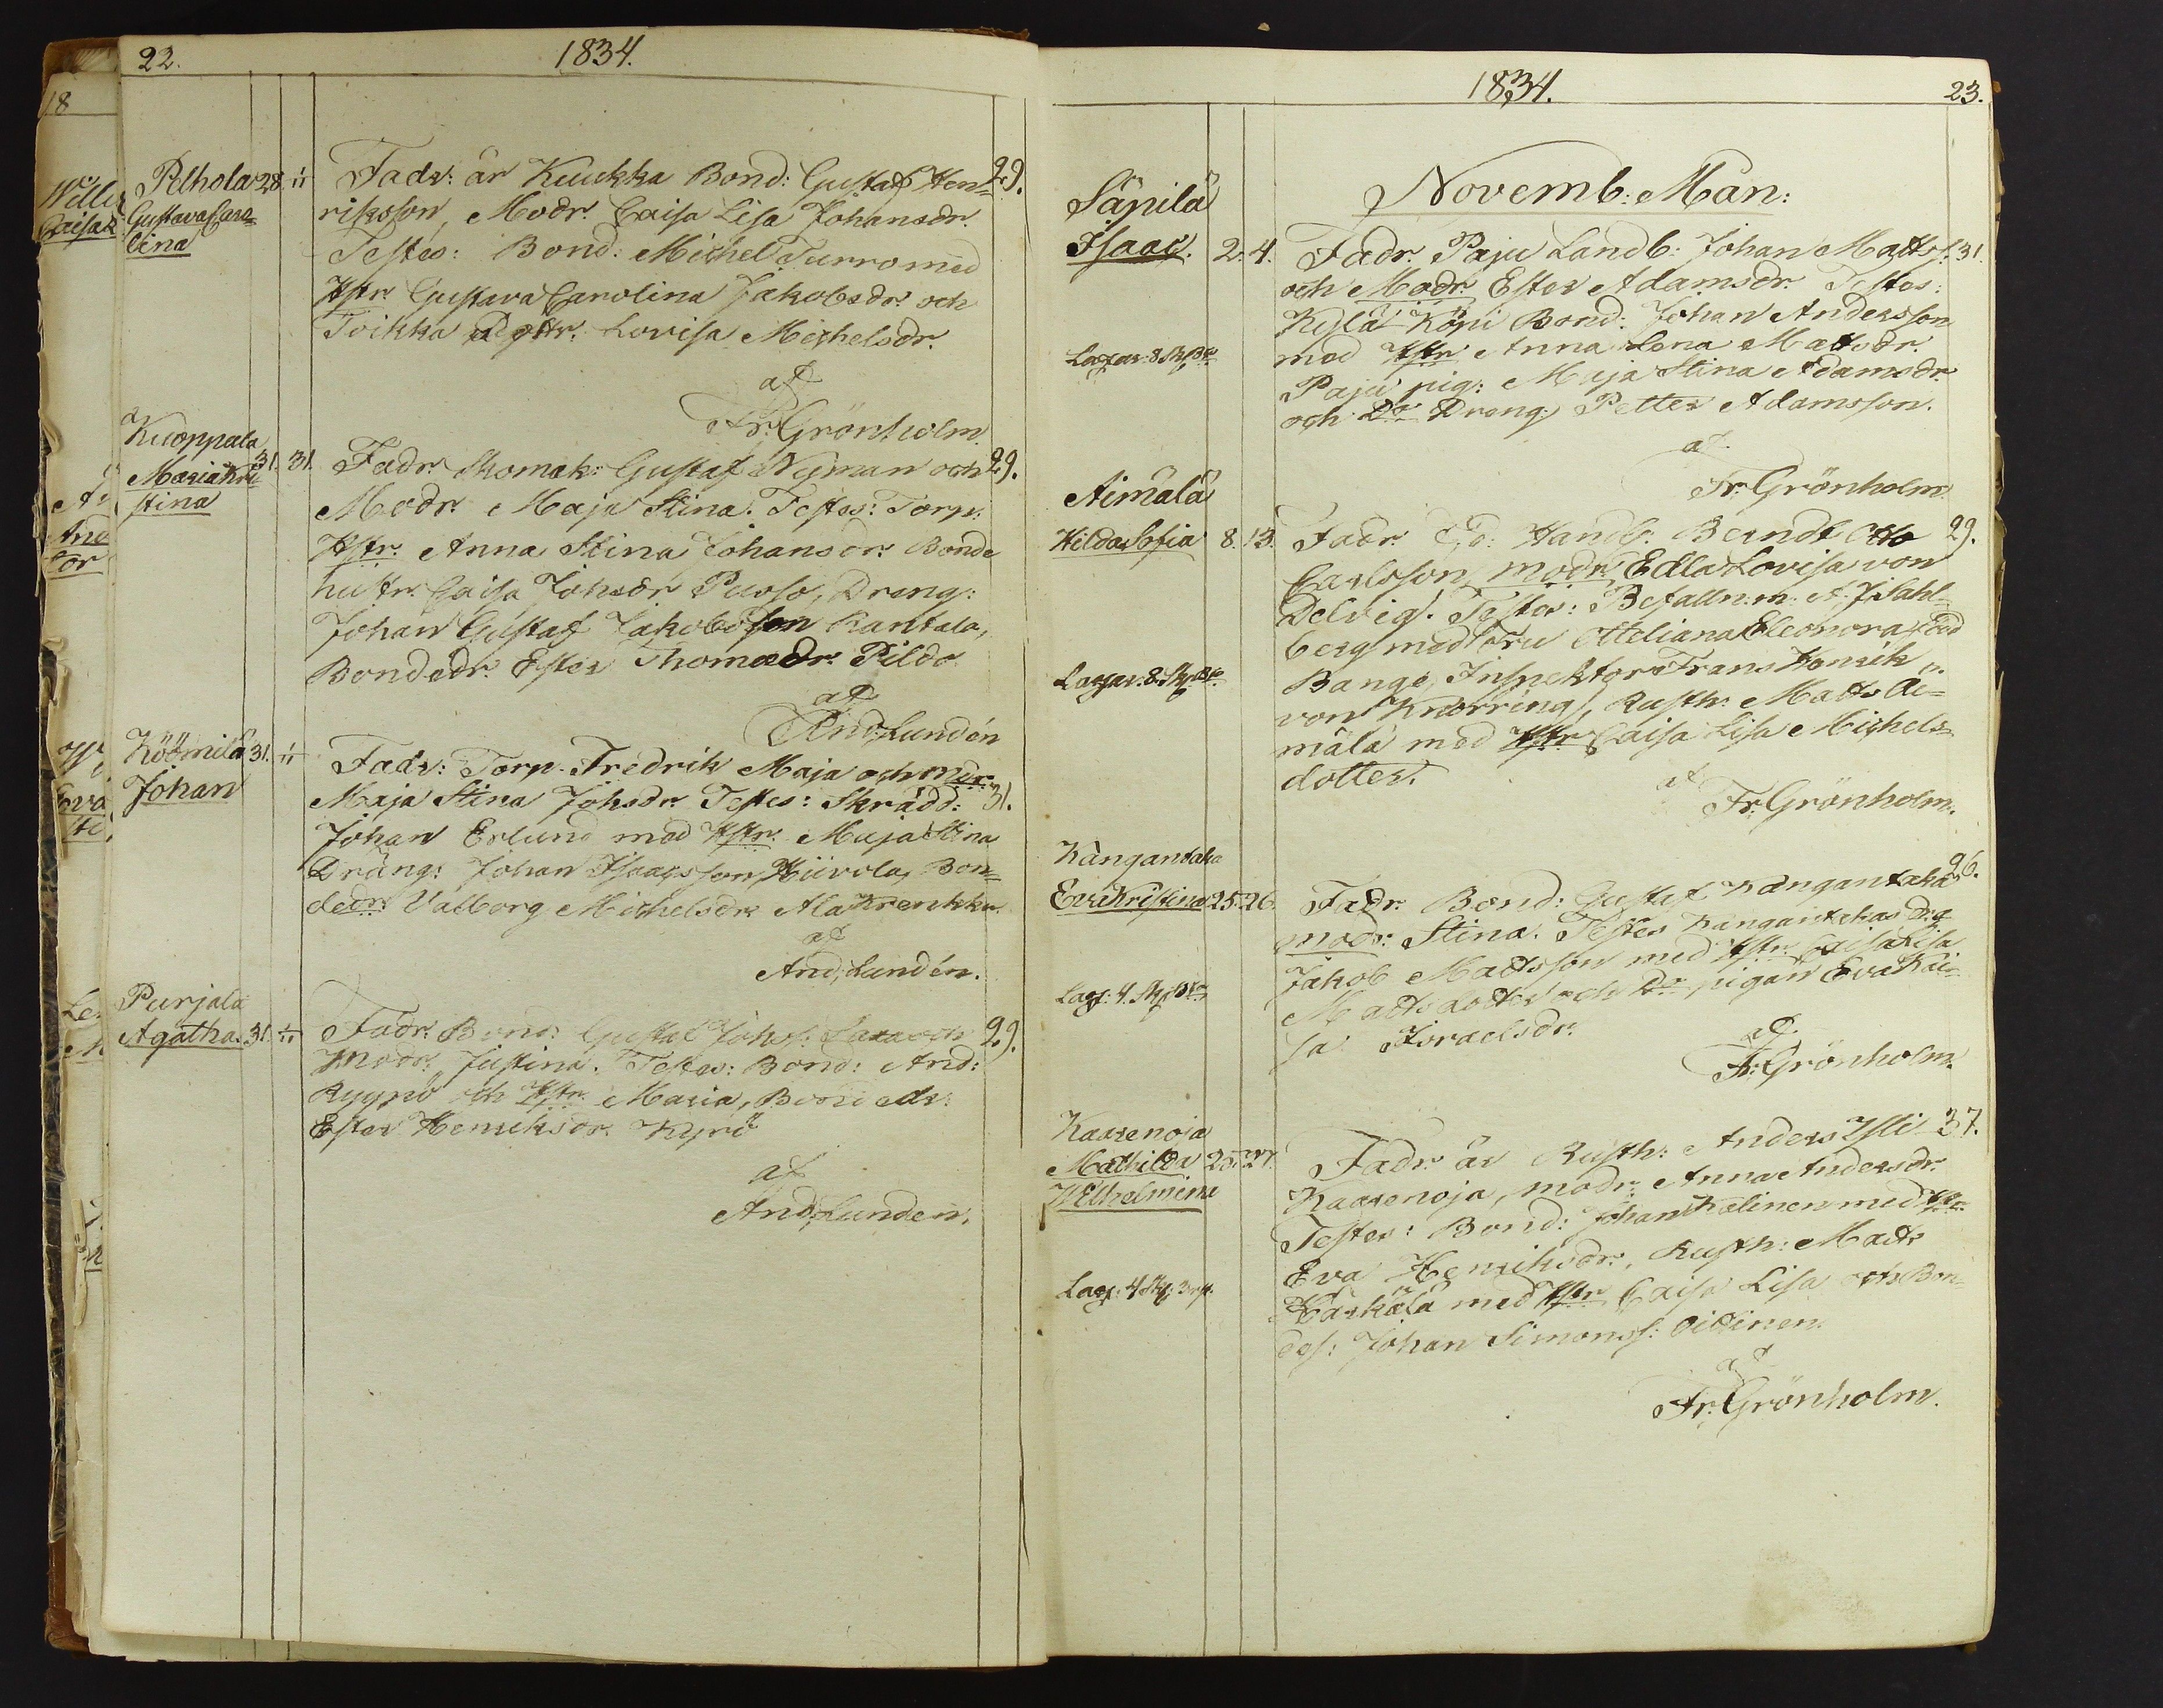 22.
1834.
18
Pelhola 28 "
Gustava Caro=
lina
Fadr: är Kuukka Bond: Gustaf Hen= 29.
riksson, Modr. Caisa Lisa Johansdr.
Testes: Bond: Michel Turro med
Hstr. Gustava Carolina Jakobsdr. och
Toikka Dottr. Lovisa Michelsdr.
af
Fr: Grönholm.
Kuoppala
Maria Kri 31. 31.
stina
Fadr. Skomak: Gustaf Nyman och 29.
Modr. Maja Stina. Testes: Torp:
Hstr. Anna Stina Johansdr. Bonde
hustr. Caisa Johsdr Pusso, Dreng:
Johan Gustaf Jakobsson Rantala,
Bondedr. Ester Thomasdr. Pildo
af
And; Lundén
Köömilä 31. "
Johan
Fadr: Torp. Fredrik Maja och Modr.
Maja Stina Johsdr. Testes: Skrädd: 31.
Johan Erlund med Hstr. Maja Stina
Dräng: Johan Isaacsson Hiivola, Bon=
dedr. Valborg Michelsdr. Ala Krenkku.
af
And; Lundén.
Purjala
Agatha. 31. "
Fadr. Bond: Gustaf Johs: och 29.
Modr: Justina. Testes: Bond: And:
Ryypö och Hstr. Maria, Bondedr:
Ester Henriksdr. Kyrö
af
And; Lunden.
1834.
23.
Novemb: Mån:
Säpilä
Isaac. 2. 4.
Fadr. Paju Landb: Johan Matts: 31.
och Modr. Ester Adamsdr. Testes:
Kylä Köpi Bond: Johan Andersson
med Hstr. Anna Lena Mattsdr.
Paju pig: Maja Stina Adamsdr.
och Do Dreng: Petter Adamsson.
af
Fr: Grönholm.
Äimälä
Hilda Sofia 8. 13.
Fadr. Handl: Berndt Otto 29.
Carlsson, Modr. Edla Lovisa von
Delvig. Testes: Befalln:m: A. J. Sahl=
berg med Fru Otteliana Eleonora född
Bange, Inspektor Frans Henrik
von Knorring, Rusth: Matts Äi=
mälä med Hstr Caisa Lisa Michels=
dotter.
af
Fr: Grönholm.
Kangantaka
Eva Kristina 25. 26.
Fadr. Bond: Gustaf Kangantaka 26.
modr: Stina. Testes Kangantakas Dg.
Jakob Mattsson med Hstr. Caisa Lisa
Matts dotter och Do pigan Eva Kai=
sa Israelsdr.
af
Fr: Grönholm.
Kaarenoja
Mathilda 25. 27.
Wilhelmina
Fadr. är Rusth: Anders Ylli 37.
Kaarenoja, modr: Anna Andersdr.
Testes: Bond: Johan Kalinen med Hstr
Eva Henriksdr., Rusth: Matts
Kärkälä med Hstr Caisa Lisa och Bon=
des: Johan Simonss: Oittinen.
af
Fr: Grönholm.